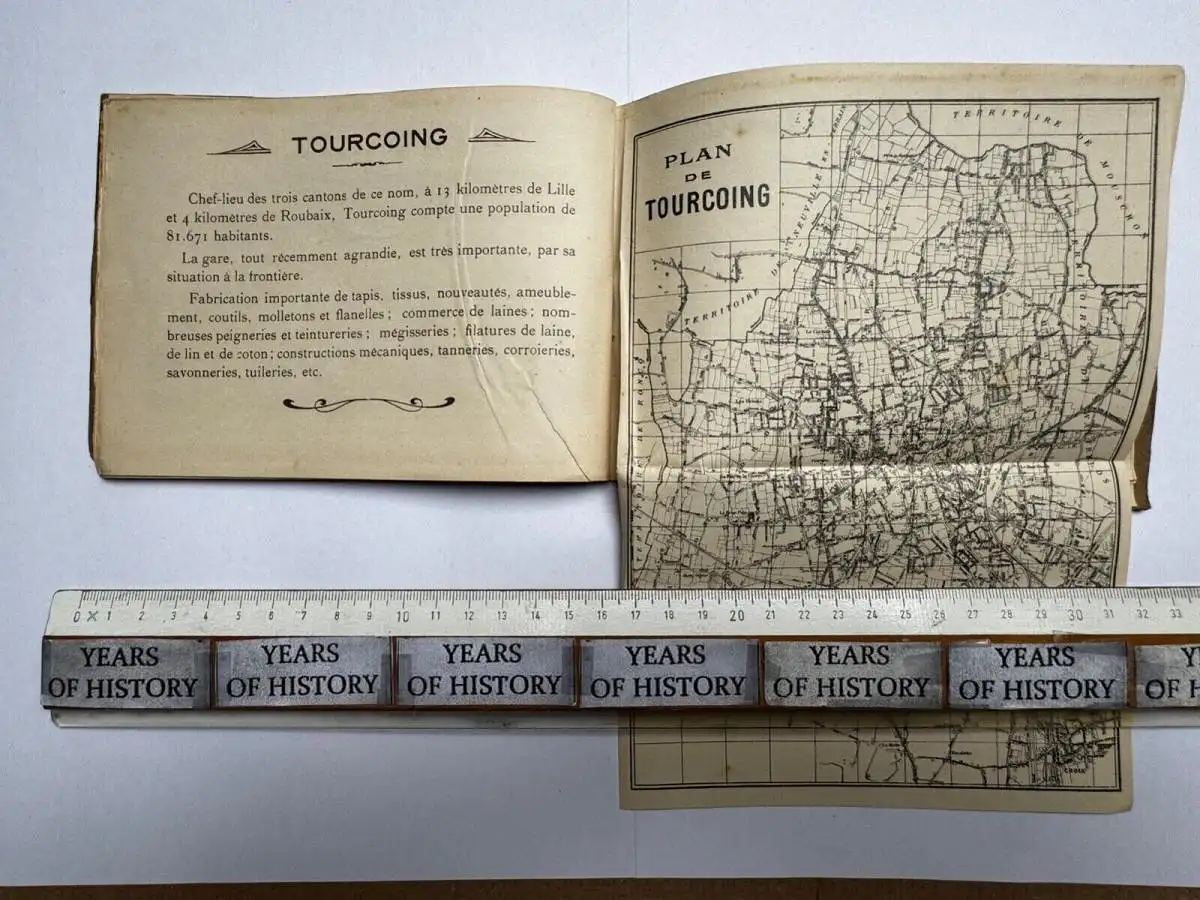 TOURCOING
Chef-lieu des trois cantons de ce nom, à 13 kilomètres de Lille
et 4 kilomètres de Roubaix, Tourcoing compte une population de
81.671 habitants.
La gare, tout récemment agrandie, est très importante, par sa
situation à la frontière.
Fabrication importante de tapis, tissus, nouveautés, ameuble-
ment, coutils, molletons et flanelles ; commerce de laines ; nom-
breuses peigneries et teintureries ; mégisseries ; filatures de laine,
de lin et de coton ; constructions mécaniques, tanneries, corroieries,
savonneries, tuileries, etc.
PLAN
DE
TOURCOING
TERRITOIRE DE MOUSCRON
TERRITOIRE DE NEUVILLE
TERRITOIRE
CROIX
0 1 2 3 4 5 6 7 8 9 10 11 12 13 14 15 16 17 18 19 20 21 22 23 24 25 26 27 28 29 30 31 32 33
YEARS YEARS YEARS YEARS YEARS YEARS Y
OF HISTORY OF HISTORY OF HISTORY OF HISTORY OF HISTORY OF HISTORY OF H